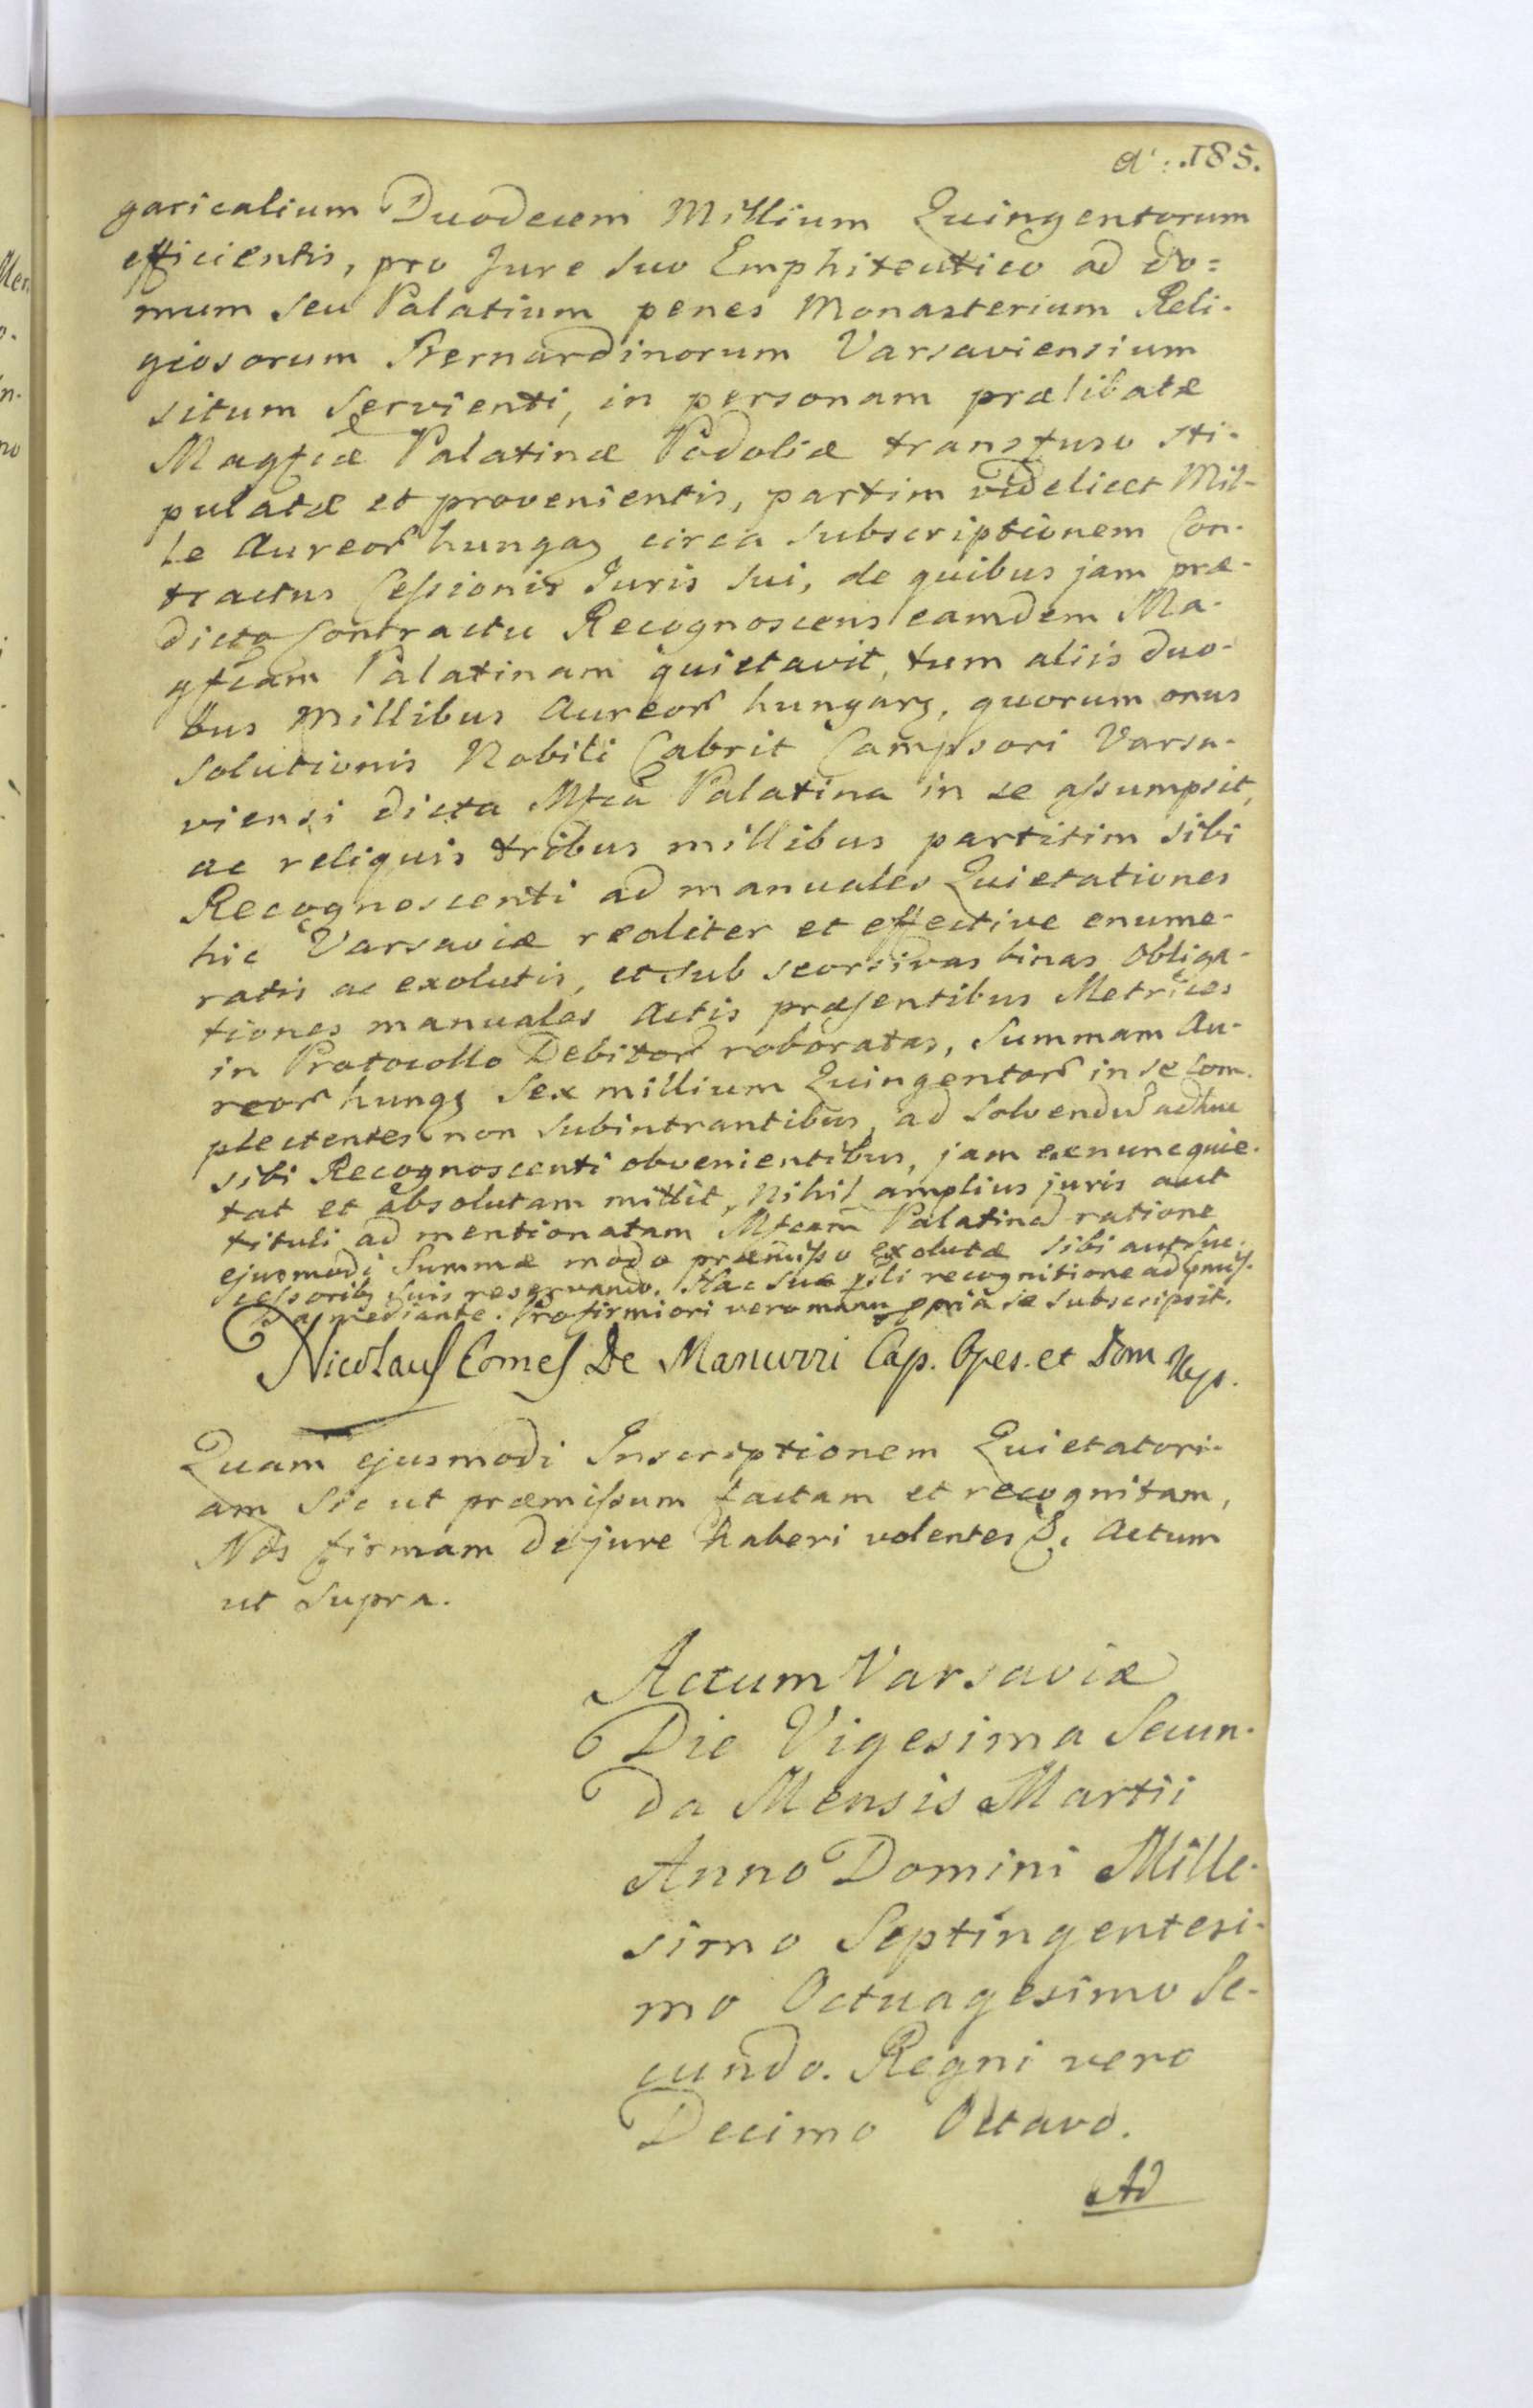 185.
garicalium Duodecem Millium Quingentorum
efficientis, pro Jure suo Emphiteutico ad do=
mum seu Palatium penes Monasterium Reli-
giosorum Bernardinorum Varsaviensium
situm servienti, in personam prælibatæ
Magfcæ Palatinæ Podoliæ transfuso sti-
pulatæ et provenientis, partim videlicet Mil-
le Aureor hungaz circa subscriptionem Con-
tractus Cessionis Juris sui, de quibus jam præ-
dicto Contractu Recognoscens eamdem Ma-
gfcam Palatinam quietavit, tum aliis duo-
bus Millibus Aureor hungarz, quorum onus
solutionis Nobili Cabrit Campsori Varsa-
viensi dicta Mfca Palatina in se assumpsit,
ac reliquis tribus millibus partitim sibi
Recognoscenti ad manuales Quietationes
hic Varsaviæ realiter et effective enume-
ratis ac exolutis, et sub seorsivas binas obliga-
tiones manuales Actis præsentibus Metrices
in Protocollo Debitor roboratas, Summam Au-
reor hungz Sex millium Quingentor in se com-
plectentes non subintrantibus, ad solvendũ adhuc
sibi Recognoscenti obvenientibus, jam ex nunc quie-
tat et absolutam mittit, Nihil amplius juris aut
tituli ad mentionatam Mfcam Palatinã ratione
ejusmodi Summæ modo præmisso exolutæ sibi aut suc-
cessoribz suis reservando. Hac suæ psli recognitione ad pmis-
sa mediante. Pro firmiori vero manu ppria se subscripsit.
Nicolaus Comes De Manuzzi Cap. Opes. et Dom
Quam ejusmodi Inscriptionem Quietatori-
am sic ut præmissum factam et recognitam,
Nos firmam de jure haberi volentes &. Actum
ut supra.
Actum Varsaviæ
Die Vigesima Secun-
da Mensis Martii
Anno Domini Mille-
simo Septingentesi-
mo Octuagesimo Se-
cundo. Regni vero
Decimo Octavo.
Ad